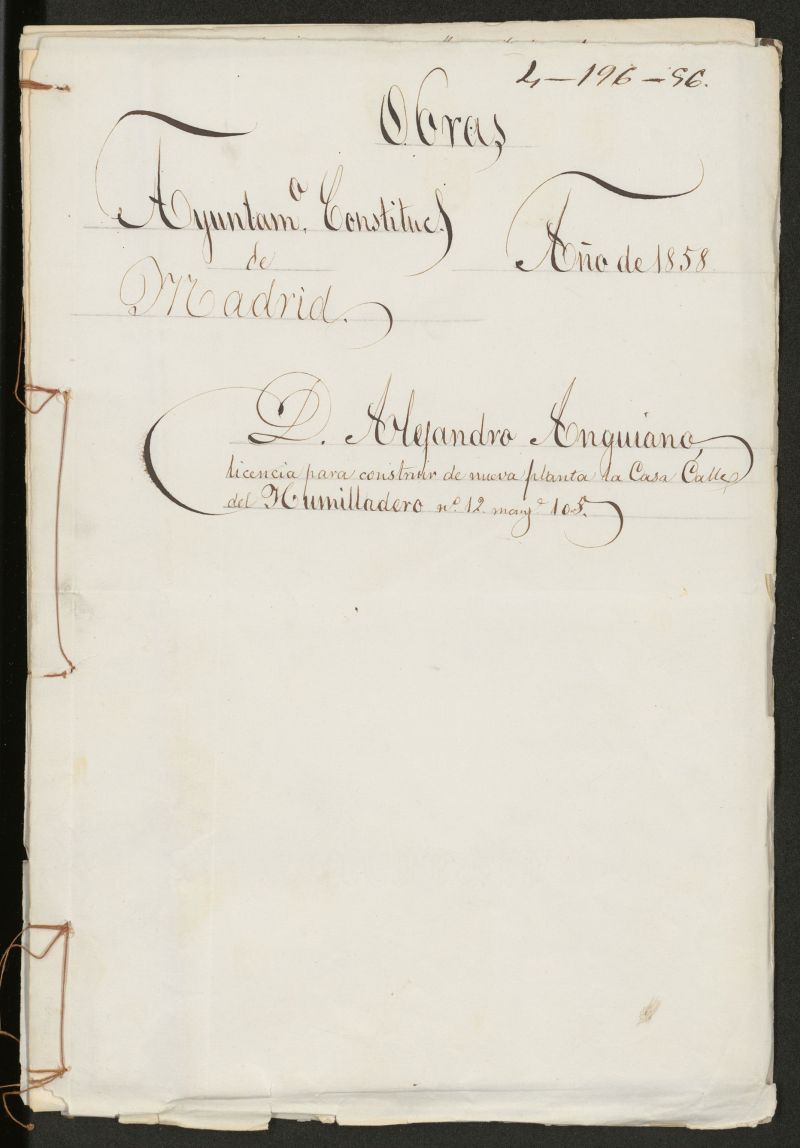 4-196-56.
Obras
Ayuntamº. Constituc.l
Año de 1858
de
Madrid.
D. Alejandro Anguiano,
licencia para construir de nueva planta la Casa Calle
del Humilladero nº. 12 manzª 105.